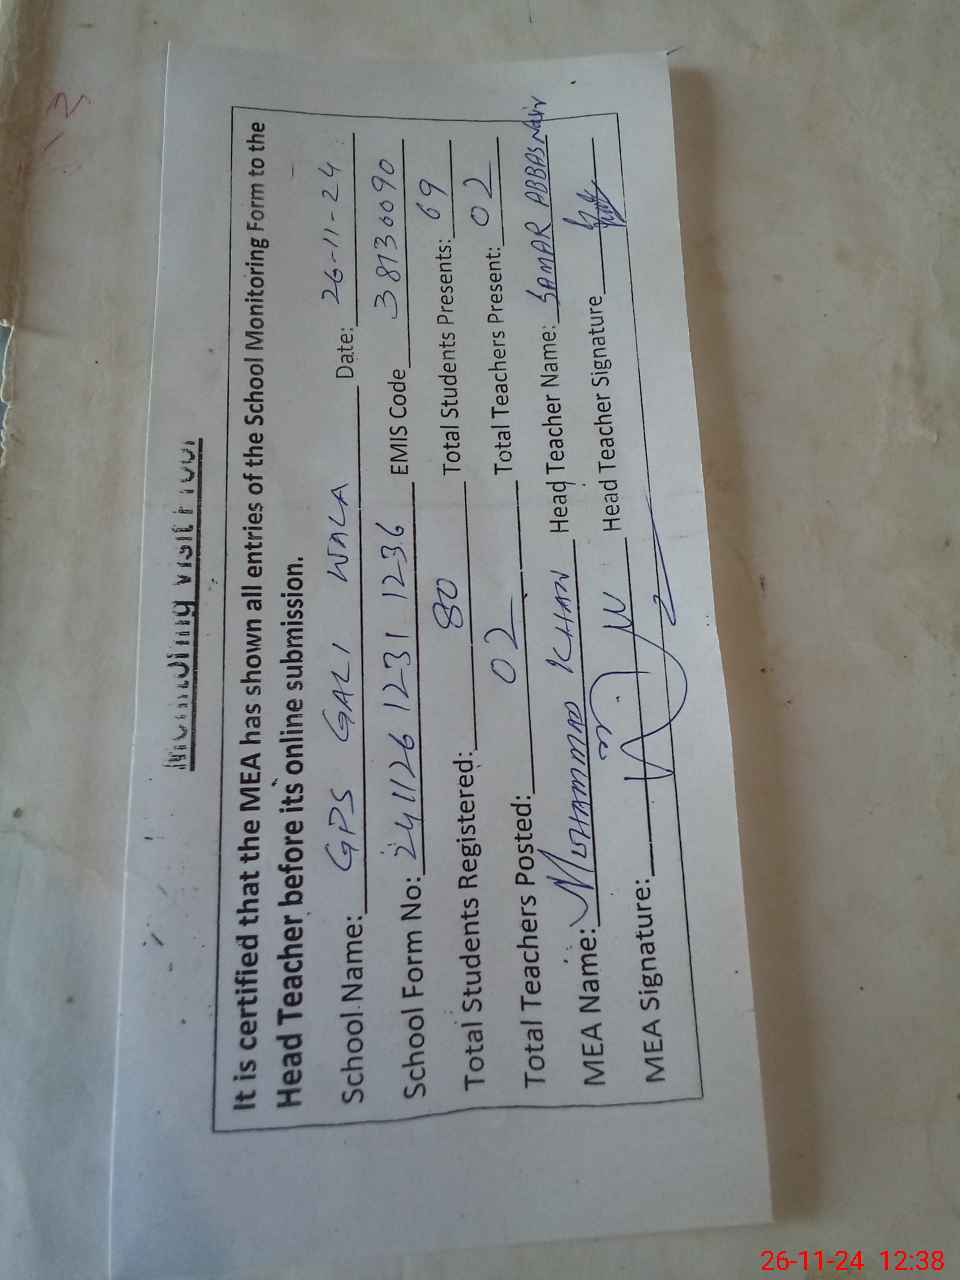 Monitoring Visit Proof
It is certified that the MEA has shown all entries of the School Monitoring Form to the
Head Teacher before its online submission.
School Name: GPS GALI WALA Date: 26-11-24
School Form No: 241126 1231 1236 EMIS Code 38130090
Total Students Registered: 80 Total Students Presents: 69
Total Teachers Posted: 02 Total Teachers Present: 02
MEA Name: MUHAMMAD KHAN Head Teacher Name: SAMAR ABBAS
MEA Signature: Head Teacher Signature
26-11-24 12:38